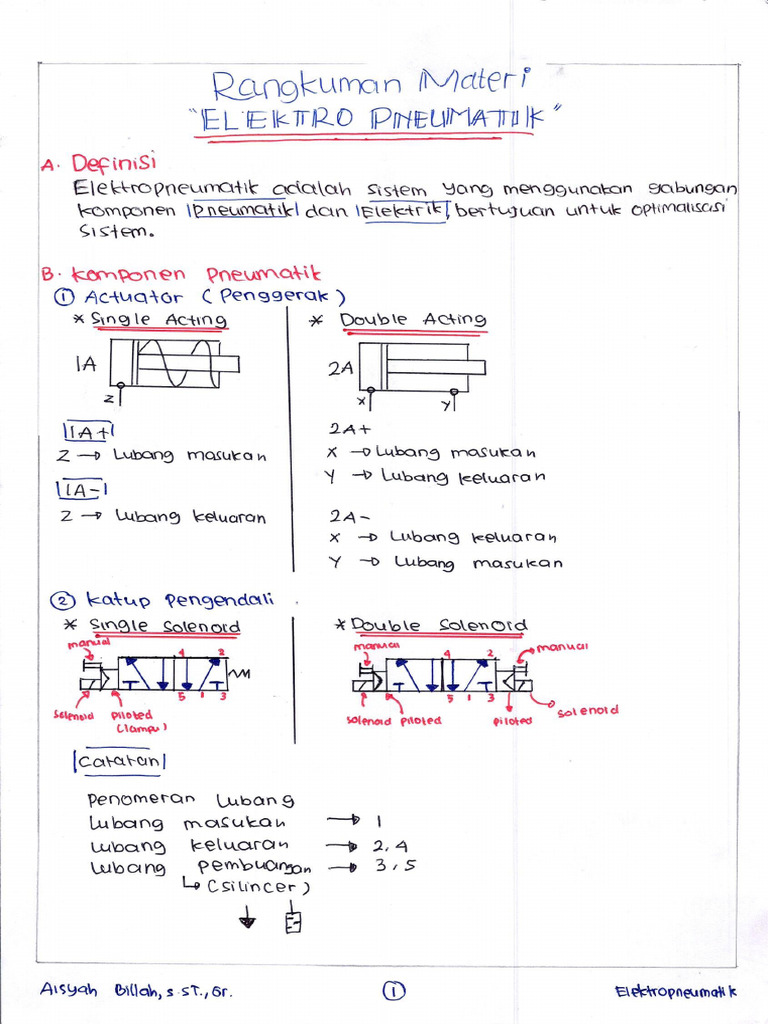 Rangkuman Materi
"ELEKTRO PNEUMATIK"
A. Definisi
Elektropneumatik adalah sistem yang menggunakan gabungan
komponen |Pneumatik| dan |Elektrik|, bertujuan untuk optimalisasi
sistem.
B. Komponen Pneumatik
① Actuator (Penggerak)
* Single Acting
1A
Z
|1A+|
Z → Lubang masukan
|1A-|
Z → Lubang keluaran
* Double Acting
2A
X Y
2A+
X → Lubang masukan
Y → Lubang keluaran
2A-
X → Lubang keluaran
Y → Lubang masukan
② Katup Pengendali
* Single Solenoid
manual
4 2
5 1 3
solenoid piloted
(lampu)
* Double Solenoid
manual 4 2 manual
5 1 3
solenoid piloted piloted solenoid
|Catatan|
Penomeran Lubang
Lubang masukan → 1
Lubang keluaran → 2, 4
Lubang pembuangan → 3, 5
↳ (silincer)
Aisyah Billah, S.ST., Gr.
①
Elektropneumatik